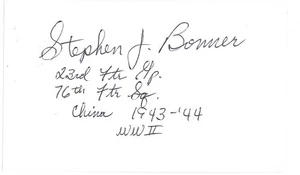 Stephen J. Bonner
23rd Ftr Gp.
76th Ftr Sq.
China 1943-'44
WW II